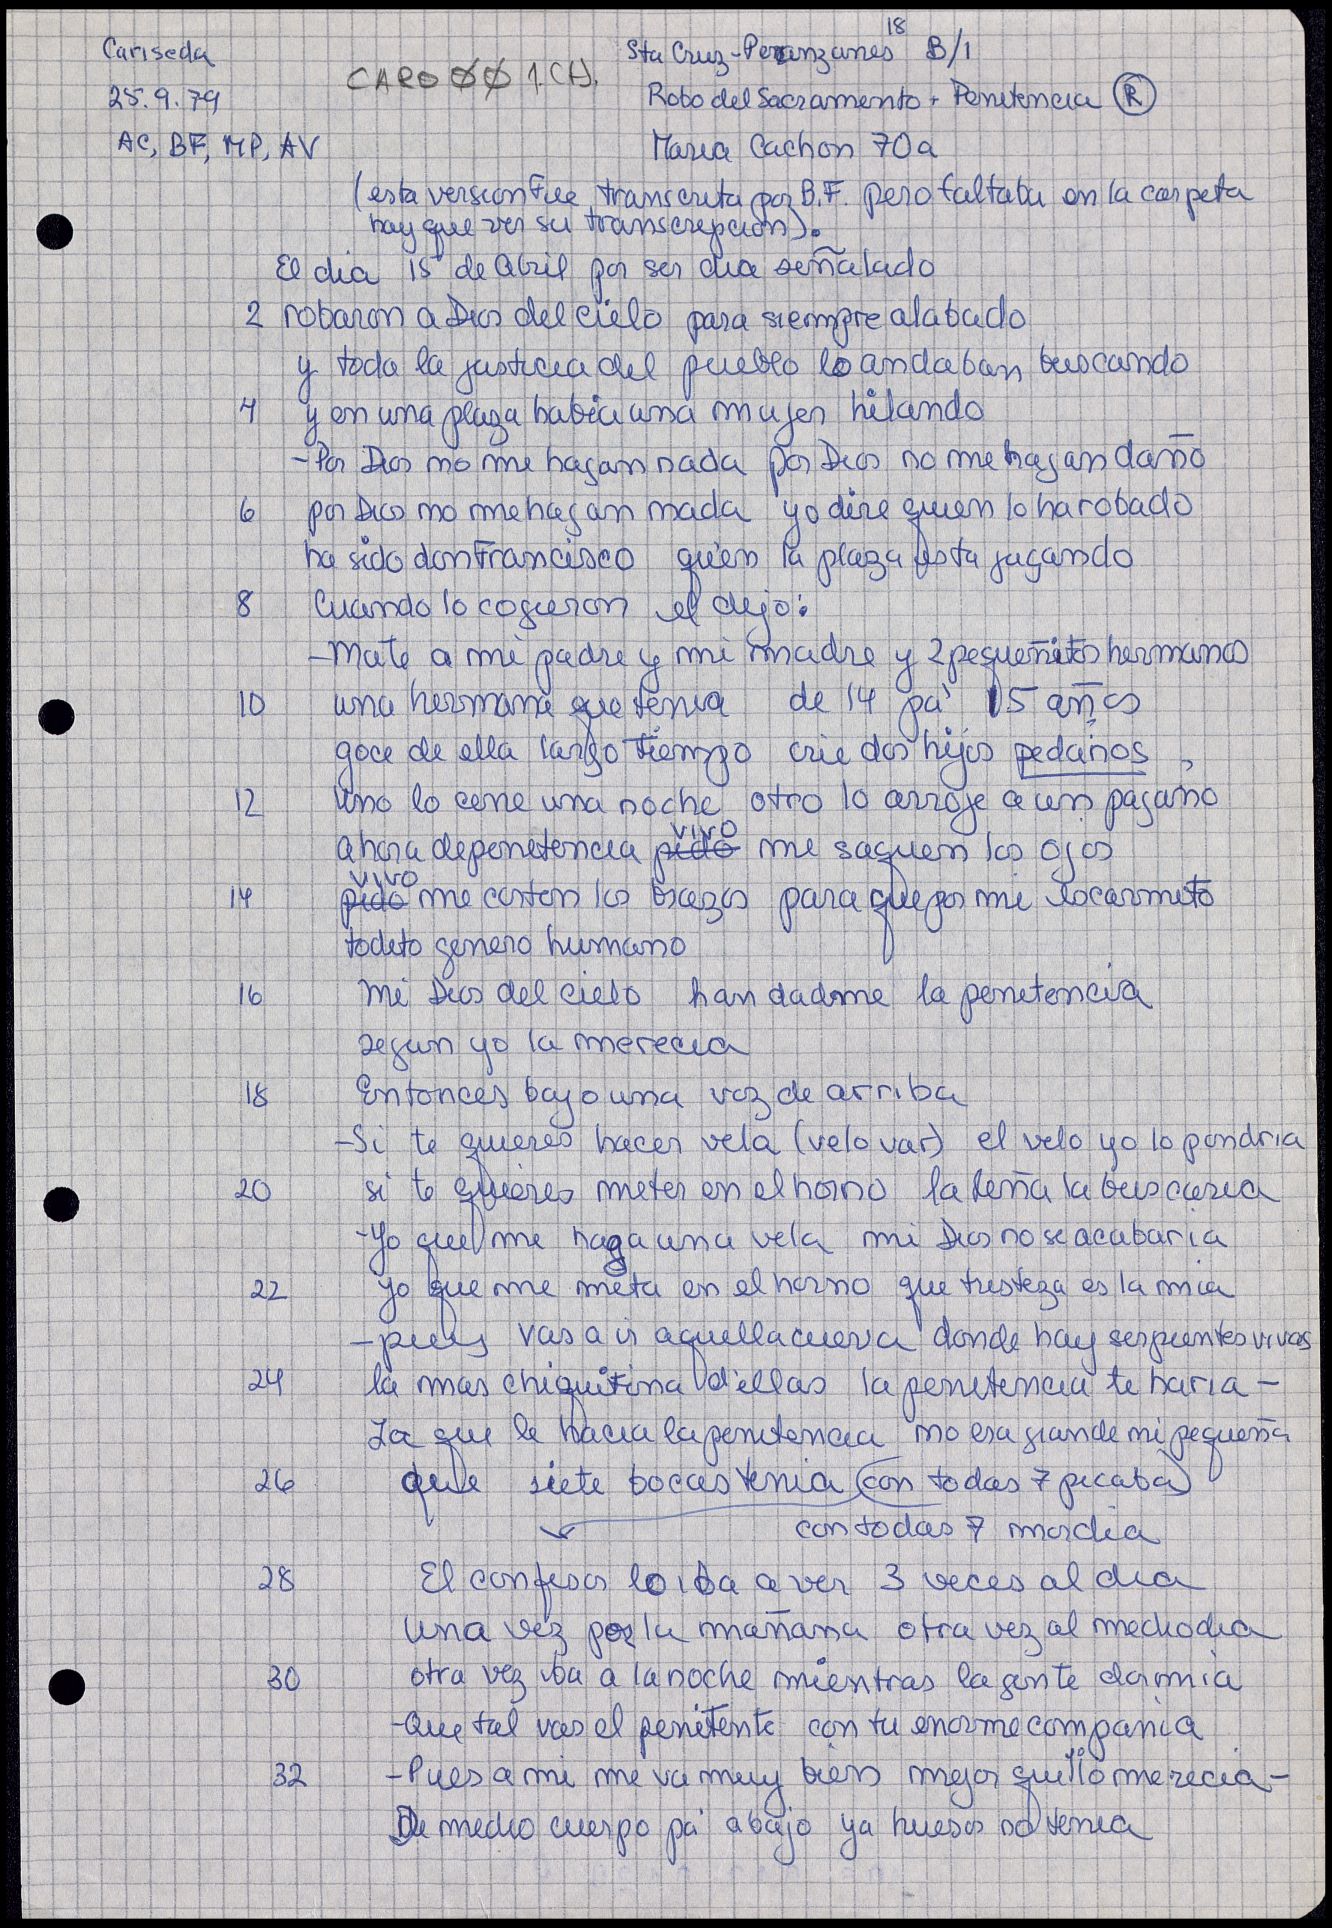 18
Cariseda
Sta Cruz-Peranzanes B/1
CARO ØØ 1.CH.
25.9.79
Robo del Sacramento + Penitencia (R)
AC, BF, MP, AV
Maria Cachon 70a
(esta version fue transcrita por B.F. pero faltaba en la carpeta
hay que ver su transcripcion).
El dia 15 de Abril por ser dia señalado
2 robaron a Dios del cielo para siempre alabado
y toda la justicia del pueblo lo andaban buscando
4 y en una plaza habia una mujer hilando
-Por Dios no me hagan nada por Dios no me hagan daño
6 por Dios no me hagan nada yo dire quien lo ha robado
ha sido don Francisco qu'en la plaza esta jugando
8 Cuando lo cogieron el dijo:
-Mate a mi padre y mi madre y 2 pequeñitos hermanos
10 una hermana que tenia de 14 pa' 15 años
goce de ella largo tiempo crie dos hijos pedaños,
12 uno lo cene una noche otro lo arroje a un pagano
ahora de penitencia pido vivo me saquen los ojos
14 pido vivo me corten los brazos para que por mi locarmito
todito genero humano
16 Mi Dios del cielo han dadome la penitencia
segun yo la merecia
18 Entonces bajo una voz de arriba
-Si te quieres hacer vela (velo var) el velo yo lo pondria
20 si te quieres meter en el horno la leña la buscaria
-Yo que me haga una vela mi Dios no se acabaria
22 yo que me meta en el horno que tristeza es la mia
-pues vas a ir aquella cueva donde hay serpientes vivas
24 la mas chiquitina d'ellas la penitencia te haria-
La que le hacia la penitencia no era grande ni pequeña
26 que siete bocas tenia (con todas 7 picaba)
con todas 7 mordia
28 El confesor lo iba a ver 3 veces al dia
una vez por la mañana otra vez al mediodia
30 otra vez iba a la noche mientras la gente dormia
-Que tal vas el penitente con tu enorme compañia
32 -Pues a mi me va muy bien mejor que yo lo merecia-
De medio cuerpo pa' abajo ya huesos no tenia